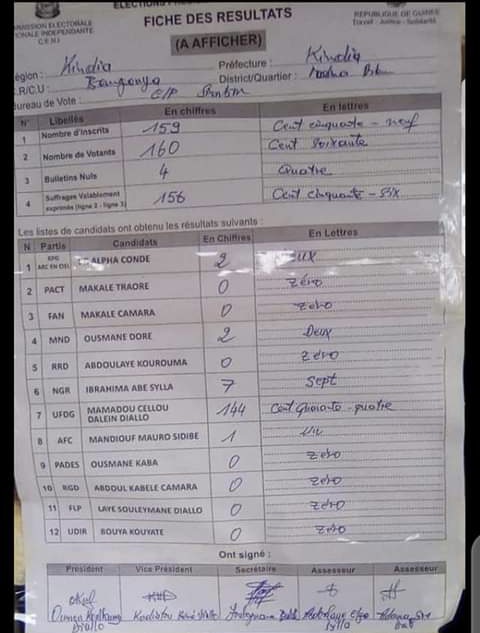 ELECTIONS
COMMISSION ELECTORALE
NATIONALE INDEPENDANTE
C.E.N.I
FICHE DES RESULTATS
(A AFFICHER)
REPUBLIQUE DE GUINEE
Travail - Justice - Solidarité
Région : Kindia
Préfecture : Kindia
C.R/C.U :
District/Quartier :
Bureau de Vote : E/P
N° Libellés En chiffres En lettres
1 Nombre d'inscrits 159 Cent cinquante - neuf
2 Nombre de Votants 160 Cent soixante
3 Bulletins Nuls 4 Quatre
4 Suffrages Valablement exprimés (ligne 2 - ligne 3) 156 Cent cinquante - six
Les listes de candidats ont obtenu les résultats suivants :
N Partis Candidats En Chiffres En Lettres
1 RPG ARC EN CIEL ALPHA CONDE 2
2 PACT MAKALE TRAORE 0 Zéro
3 FAN MAKALE CAMARA 0 Zéro
4 MND OUSMANE DORE 2 Deux
5 RRD ABDOULAYE KOUROUMA 0 Zéro
6 NGR IBRAHIMA ABE SYLLA 7 Sept
7 UFDG MAMADOU CELLOU DALEIN DIALLO 144 Cent - quatre
8 AFC MANDIOUF MAURO SIDIBE 1 Un
9 PADES OUSMANE KABA 0 Zéro
10 RGD ABDOUL KABELE CAMARA 0 Zéro
11 FLP LAYE SOULEYMANE DIALLO 0 Zéro
12 UDIR BOUYA KOUYATE 0 Zéro
Ont signé :
Président Vice Président Secrétaire Assesseur Assesseur
Diallo